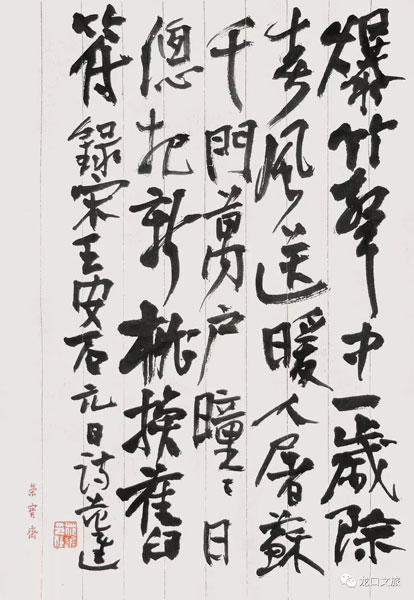 爆竹聲中一歲除
春風送暖入屠蘇
千門萬户曈〻日
總把新桃換舊
符錄宋王安石元日詩
榮寶齋
龙口文旅